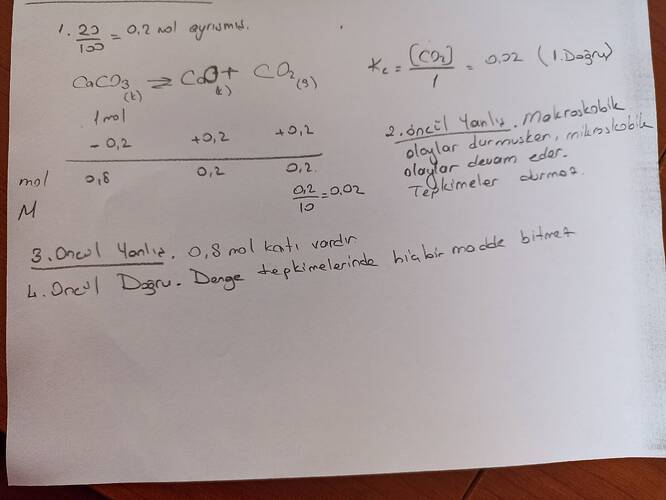 1. 20/100 = 0,2 mol ayrışmış.
CaCO3(k) ⇌ CaO(k) + CO2(g)
1 mol
- 0,2 +0,2 +0,2
mol 0,8 0,2 0,2
M 0,2/10 = 0,02
Kc = [CO2]/1 = 0,02 (1. Doğru)
2. öncül Yanlış. Makroskobik
olaylar durmuşken, mikroskobik
olaylar devam eder.
Tepkimeler durmaz.
3. Öncül Yanlış. 0,8 mol katı vardır
4. Öncül Doğru. Denge tepkimelerinde hiçbir madde bitmez